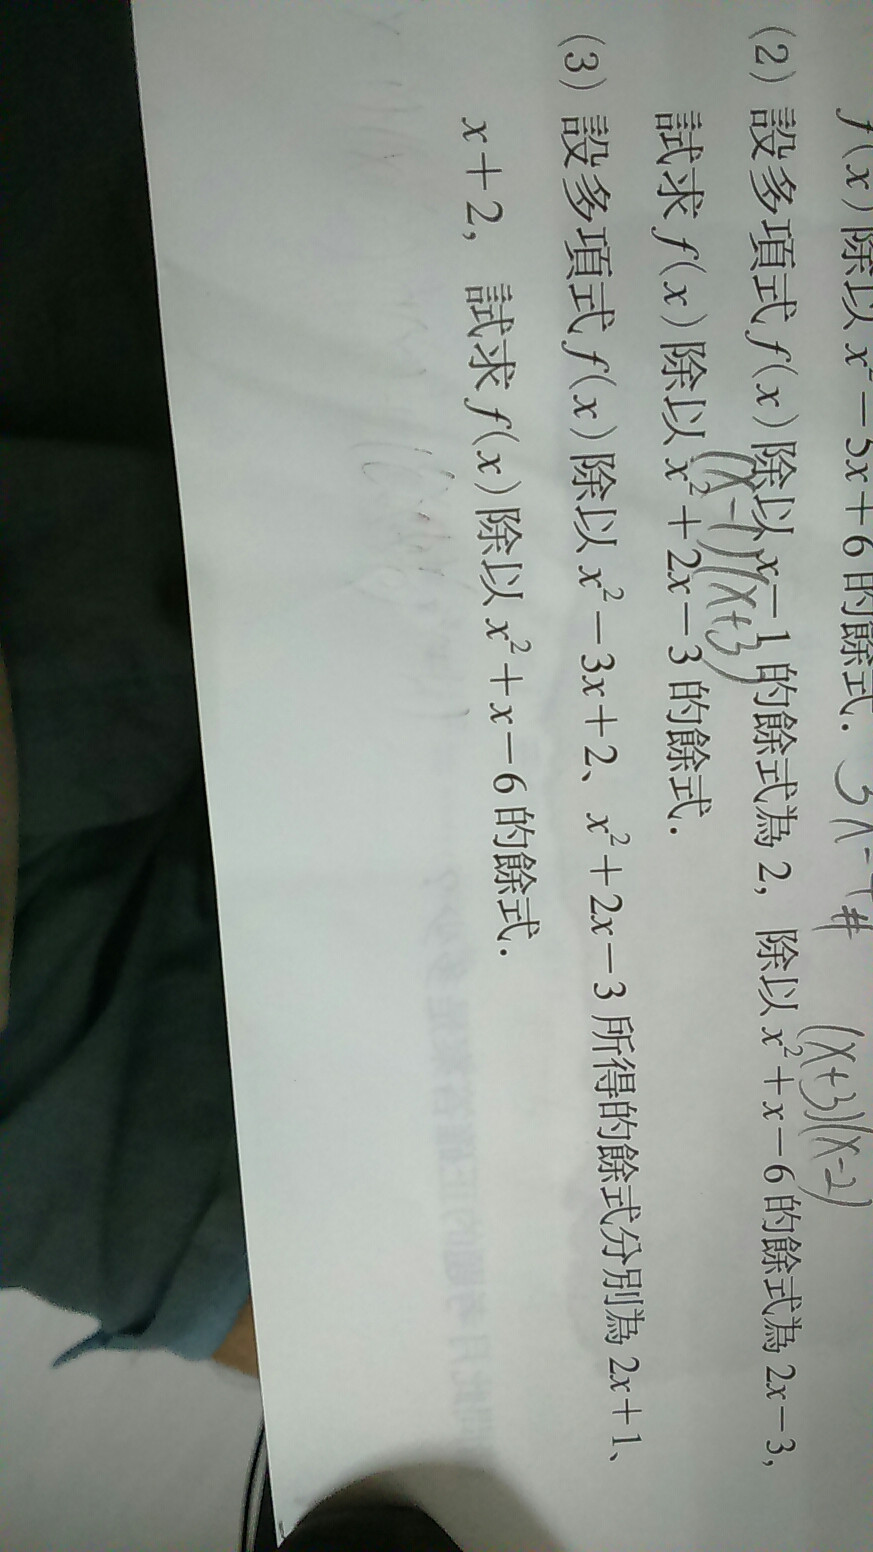 f(x)除以 x²－5x＋6 的餘式．
(x+3)(x-2)
(2) 設多項式 f(x) 除以 x－1 的餘式為 2，除以 x²＋x－6 的餘式為 2x－3，
(x-1)(x+3)
試求 f(x) 除以 x²＋2x－3 的餘式．
(3) 設多項式 f(x) 除以 x²－3x＋2、x²＋2x－3 所得的餘式分別為 2x＋1、
x＋2，試求 f(x) 除以 x²＋x－6 的餘式．